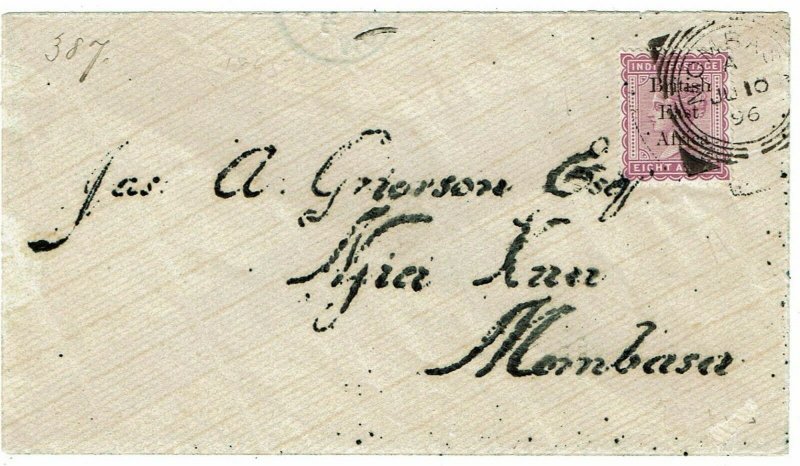 387.
INDIA POSTAGE
British
East
Africa
EIGHT ANNAS
MOMBASA
A
JU 10
96
Jas. A. Grierson Esq
Njia Kuu
Mombasa